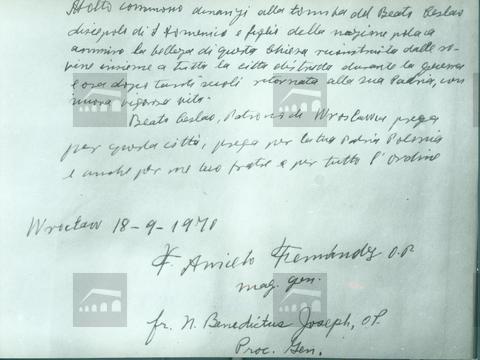 Molto commosso dinanzi alla tomba del Beato Ceslao
discepolo di S Domenico e figlio della nazione polacca
ammiro la bellezza di questa chiesa ricostruita dalle ro-
vine insieme a tutta la città distrutta durante la guerra
e ora dopo tanti secoli ritornata alla sua Patria, con
nuova vigorosa vita.
Beato Ceslao, Patrono di Wroslavia prega
per questa città, prega per la tua Patria Polonia
e anche per me tuo frate e per tutto l'Ordine
Wrocław 18-9-1970
F. Aniceto Fernández O.P.
mag. gen.
fr. N. Benedictus Joseph, OP.
Proc. Gen.